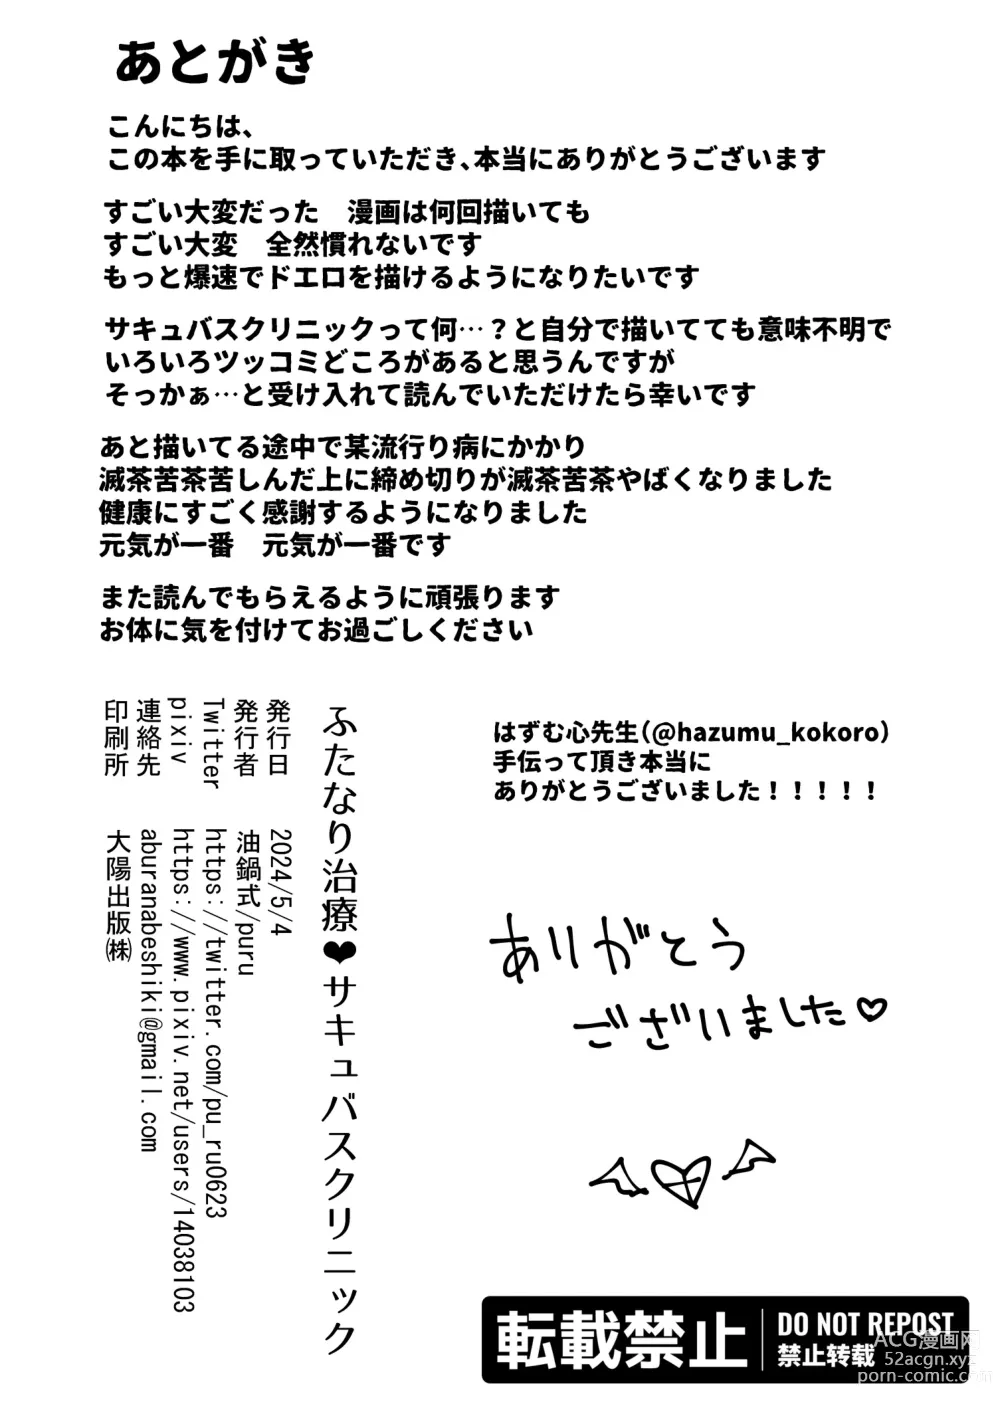 あとがき
こんにちは、
この本を手に取っていただき、本当にありがとうございます
すごい大変だった　漫画は何回描いても
すごい大変　全然慣れないです
もっと爆速でドエロを描けるようになりたいです
サキュバスクリニックって何…？と自分で描いてても意味不明で
いろいろツッコミどころがあると思うんですが
そっかぁ…と受け入れて読んでいただけたら幸いです
あと描いてる途中で某流行り病にかかり
滅茶苦茶苦しんだ上に締め切りが滅茶苦茶やばくなりました
健康にすごく感謝するようになりました
元気が一番　元気が一番です
また読んでもらえるように頑張ります
お体に気を付けてお過ごしください
はずむ心先生（@hazumu_kokoro）
手伝って頂き本当に
ありがとうございました！！！！！
ありがとう
ございました♡
ふたなり治療❤サキュバスクリニック
発行日　2024/5/4
発行者　油鍋式/puru
Twitter　https://twitter.com/pu_ru0623
pixiv　https://www.pixiv.net/users/14038103
連絡先　aburanabeshiki@gmail.com
印刷所　大陽出版㈱
転載禁止
DO NOT REPOST
禁止转载
ACG漫画网
52acgn.xyz
porn-comic.com